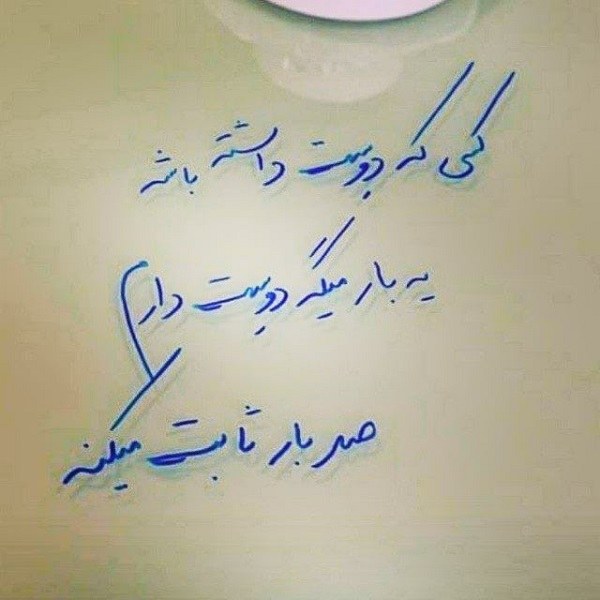 کسی که دوست داشته باشه
یه بار میگه دوست دارم
صد بار ثابت میکنه